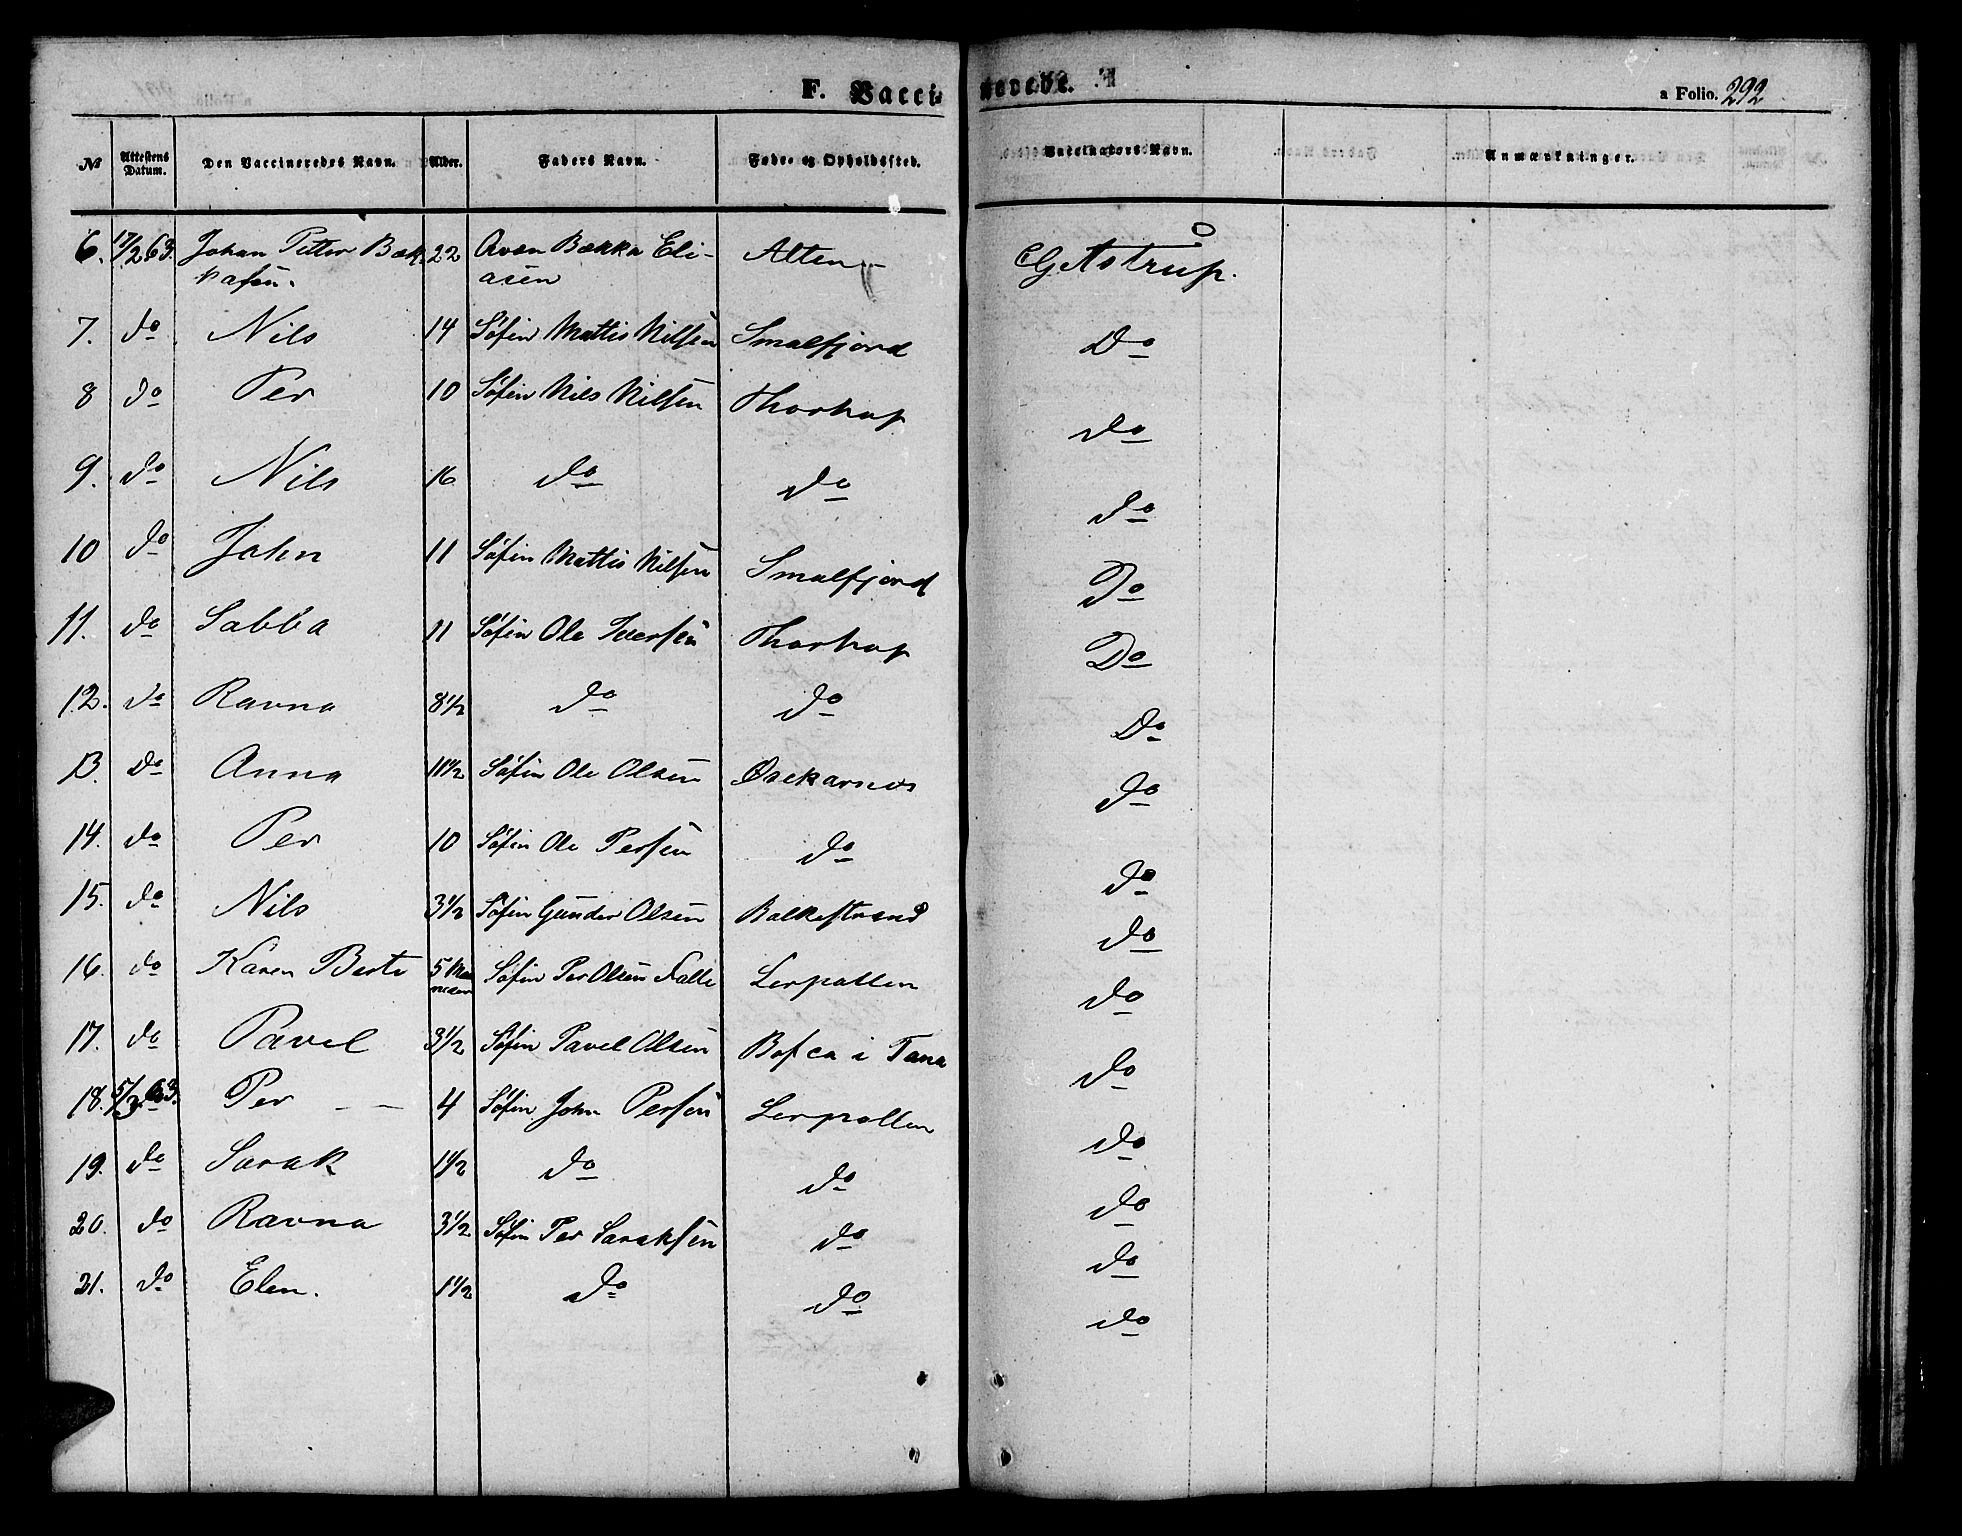 F. Vaccinerede.
a Folio. 292
№ Attestens Datum. Den Vaccineredes Navn. Alder. Faders Navn. Føde- og Opholdssted. Vaccinators Navn. Anmærkninger.
6. 17/2 63. Johan Petter Bæk- 22 Aven Bækka Eli- Alten G Astrup.
kasen. asen
7. do Nils 14 Søfin Mattis Nilsen Smalfjord Do
8 do Per 10 Søfin Nils Nilsen Thorhop do
9. do Nils 16 do do do
10 do John 11 Søfin Mattis Nilsen Smalfjord Do
11. do Sabba 11 Søfin Ole Iversen Thorhop Do
12. do Ravna 8 1/2 do do Do
13. do Anna 11 1/2 Søfin Ole Olsen do
14. do Per 10 Søfin Ole Persen do do
15. do Nils 3 1/2 Søfin Gunder Olsen do
16. do Karen Berte 5 Maaneder Søfin Per Olsen Falle Lerpollen do
17. do Pavel 3 1/2 Søfin Pavel Olsen i Tana do
18. 5/3 63. Per - - 4 Søfin John Persen Lerpollen do
19. do Sarak 1 1/2 do do do
20. do Ravna 3 1/2 Søfin Per Saraksen do do
21. do Elen. 1 1/2 do do do